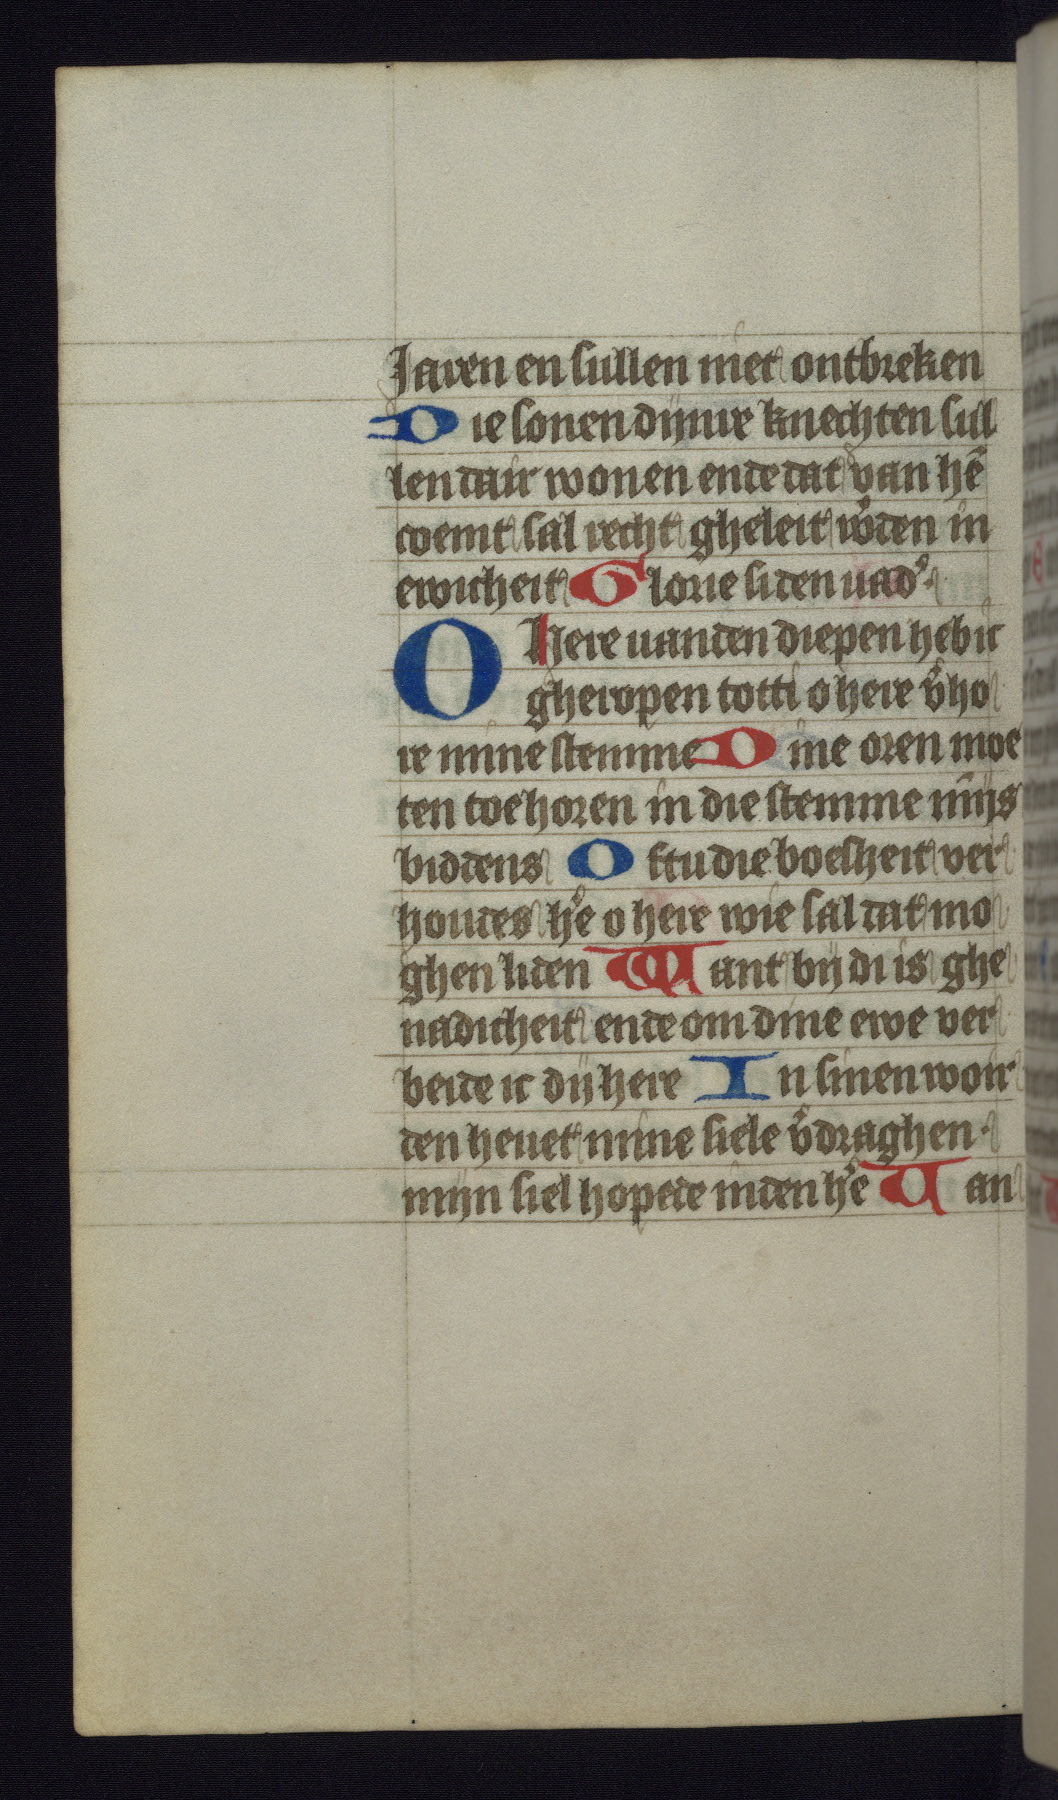 Jaren en sullen niet ontbreken
Die sonen dijnre knechten sul
len dair wonen ende dat van hē
coemt sal recht gheleit w̉den in
ewicheit Glorie si den uad̉.
O Here uanden diepen heb ic
gheropen tot ti o here v̉ho
re mine stemme Dine oren moe
ten toehoren in die stemme mijs̄
biddens Oftu die boesheit ver
houdes h̉e o here wie sal dat mo
ghen liden Want bij di is ghe
nadicheit ende om dine ewe ver
beide ic dij here In sinen woir
den heuet mine siele v̉draghen.
mijn siel hopede inden h̉e Uan